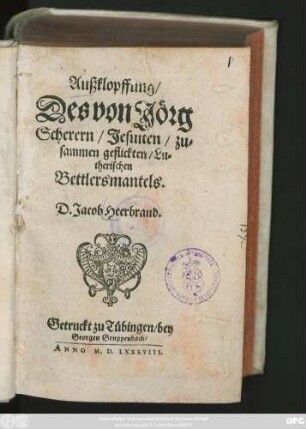 1
Außklopffung/
Des von Jörg
Scherern/ Jesuiten/ zu-
sammen geflickten/ Lu-
therischen
Bettlersmantels.
D. Jacob Heerbrand.
Getruckt zu Tübingen/ bey
Georgen Gruppenbach/
ANNO M. D. LXXXVIII.